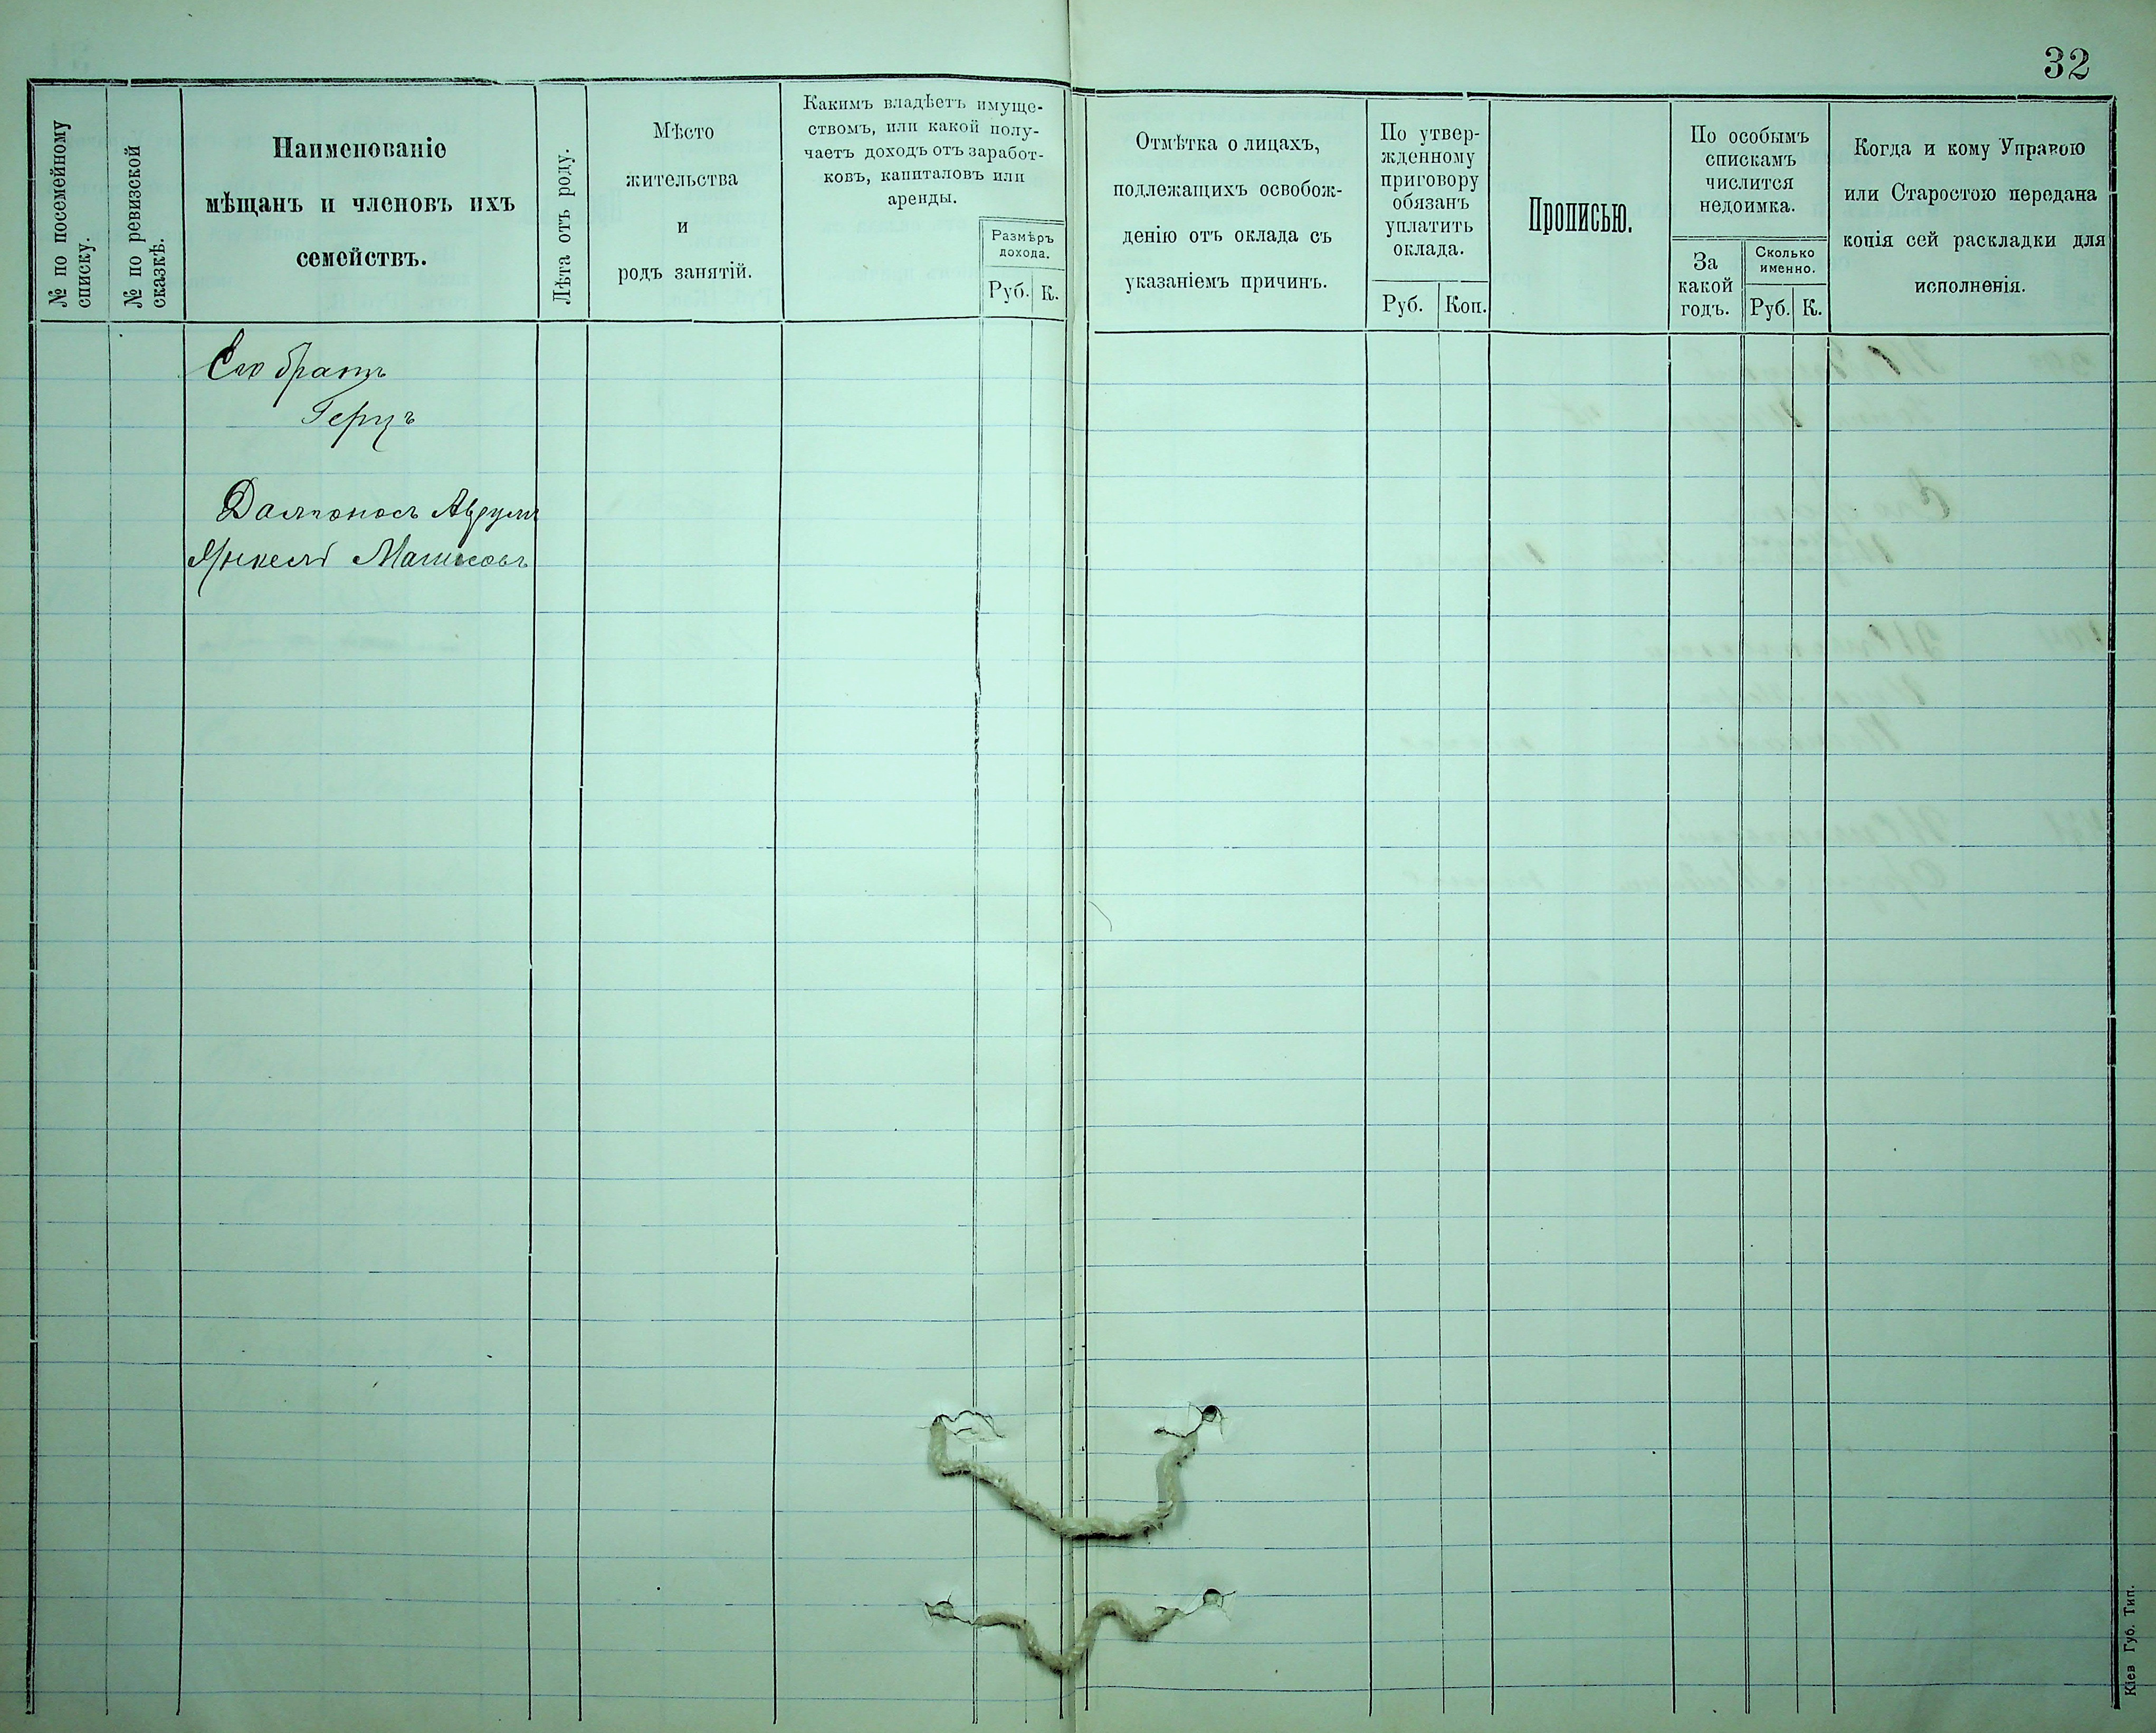 32
№ по посемейному
списку.
№ по ревизской
сказкѣ.
Наименованіе
мѣщанъ и членовъ ихъ
семействъ.
Лѣта отъ роду.
Мѣсто
жительства
и
родъ занятій.
Какимъ владѣетъ имуще-
ствомъ, или какой полу-
чаетъ доходъ отъ заработ-
ковъ, капиталовъ или
аренды.
Размѣръ
дохода.
Руб. К.
Отмѣтка о лицахъ,
подлежащихъ освобож-
денію отъ оклада съ
указаніемъ причинъ.
По утвер-
жденному
приговору
обязанъ
уплатить
оклада.
Руб. Коп.
Прописью.
По особымъ
спискамъ
числится
недоимка.
За
какой
годъ.
Сколько
именно.
Руб. К.
Когда и кому Управою
или Старостою передана
копія сей раскладки для
исполненія.
Его братъ
Герцъ
Далпоносъ Аврумъ
Янкель
Кіев Губ. Тип.